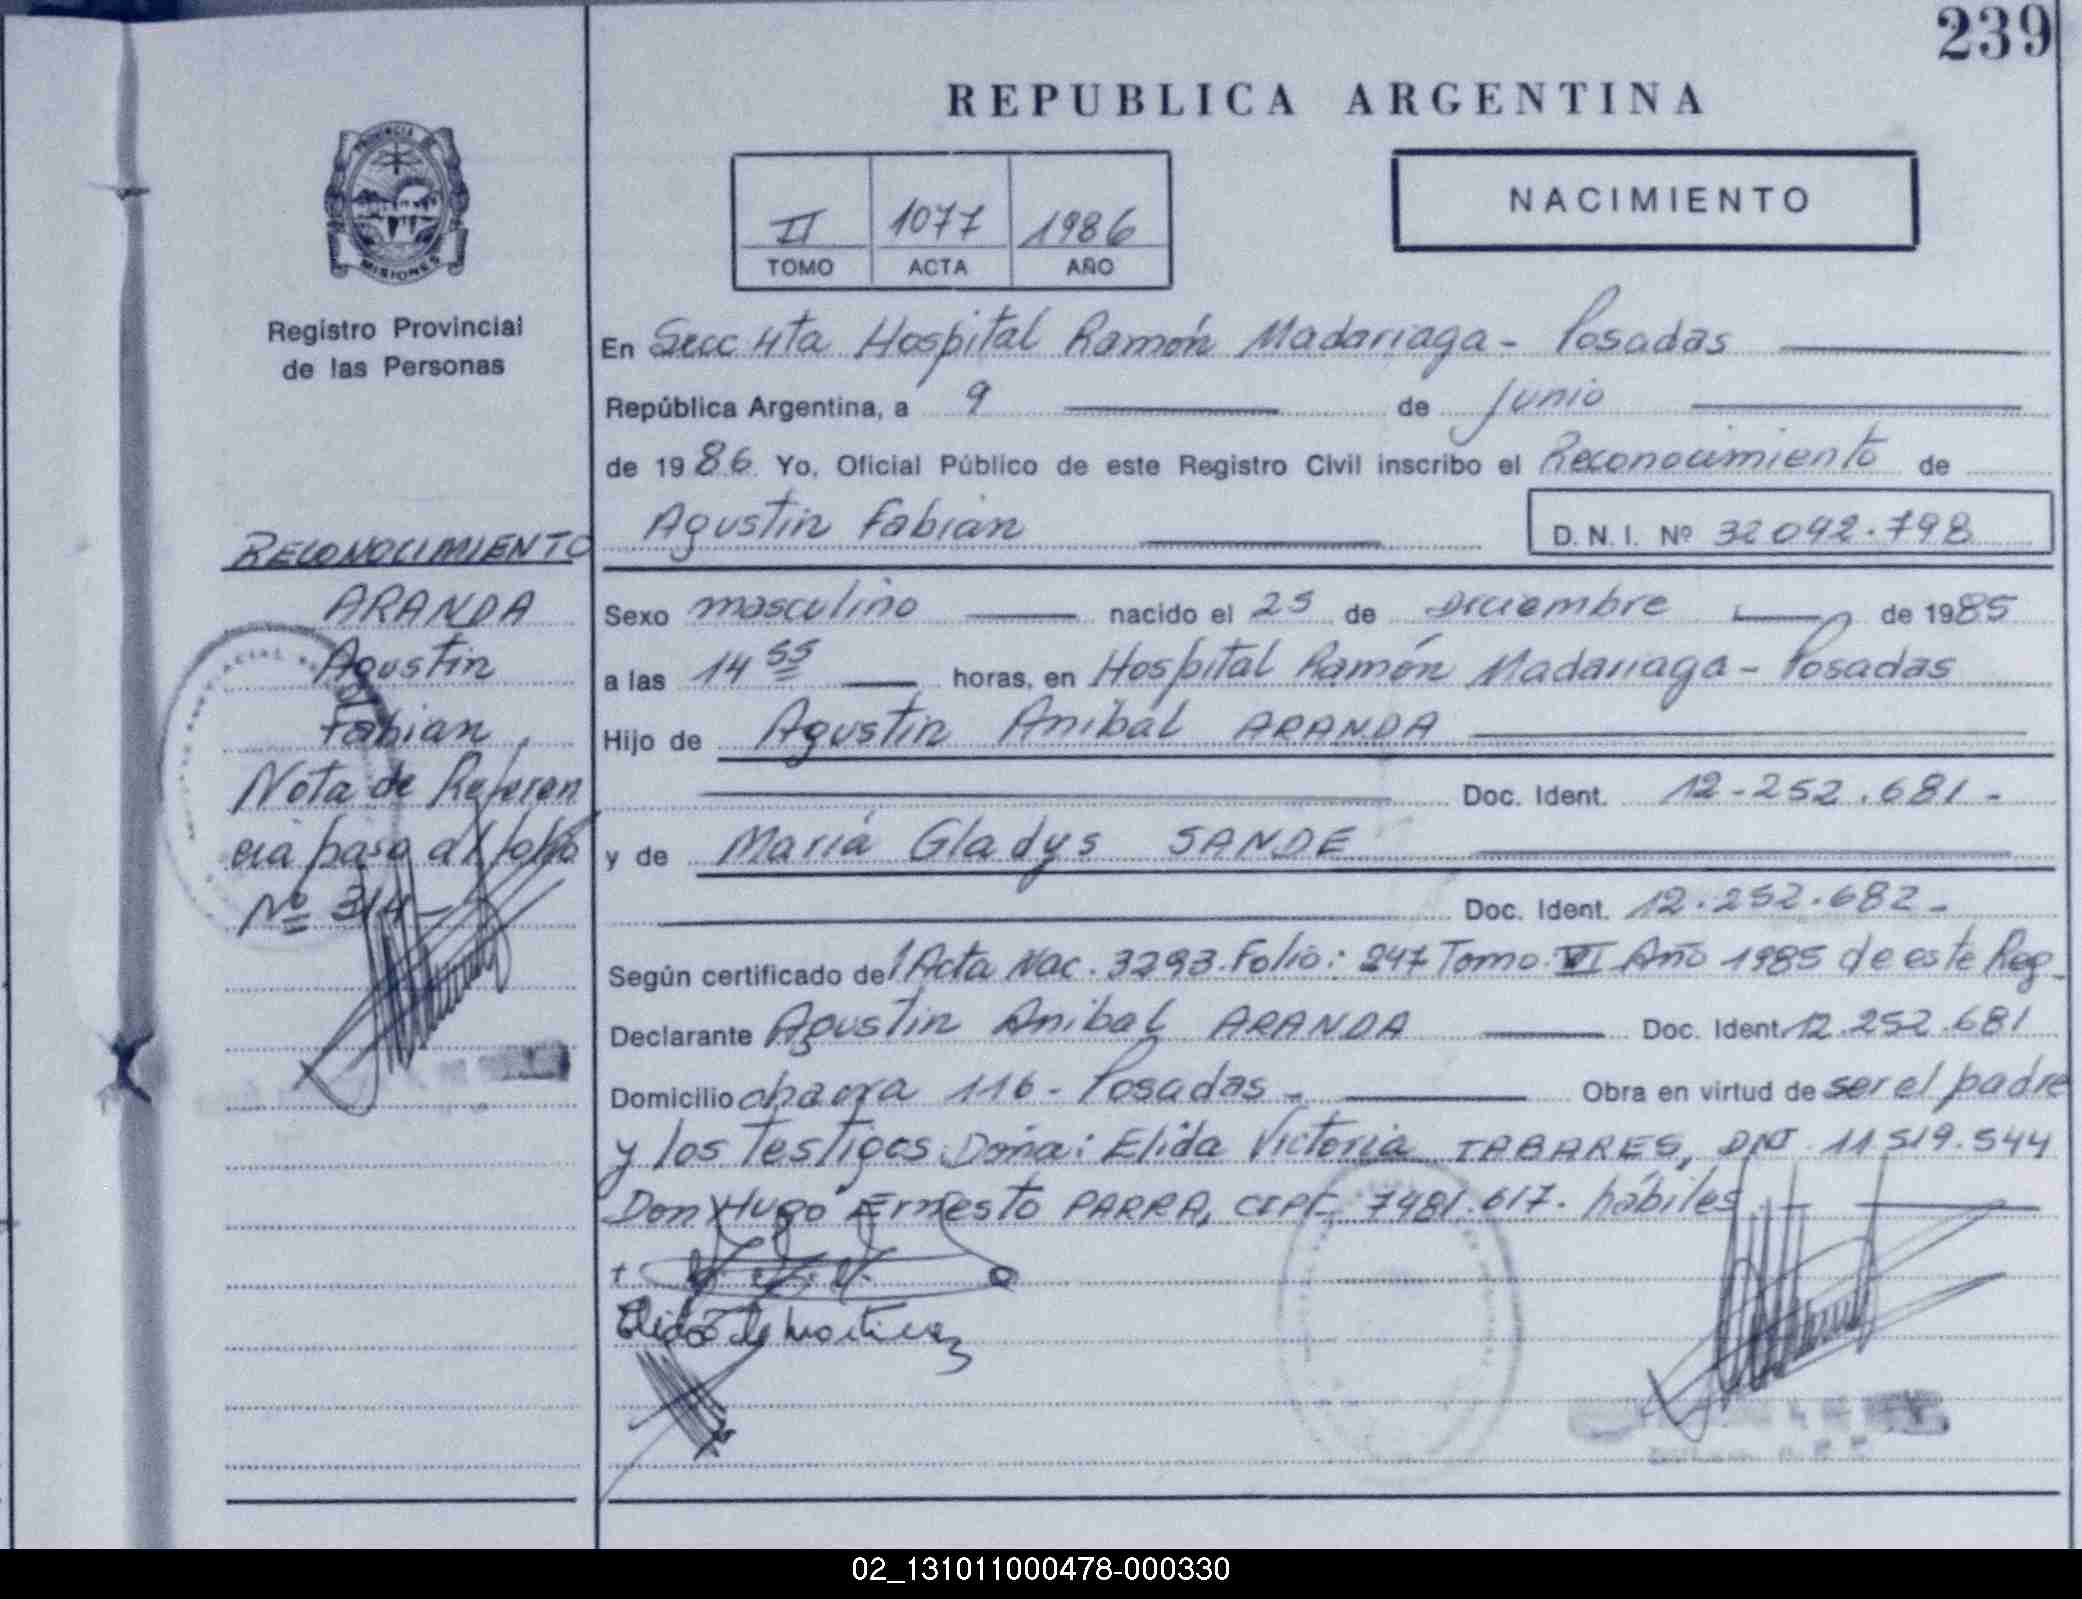 239
REPUBLICA ARGENTINA
PROVINCIA DE
MISIONES
Registro Provincial
de las Personas
II 1077 1986
TOMO ACTA AÑO
NACIMIENTO
En Secc 4ta Hospital Ramón Madariaga - Posadas
República Argentina, a 9 de Junio
de 1986. Yo, Oficial Público de este Registro Civil inscribo el Reconocimiento de
Agustin Fabián
D. N. I. Nº 32 092.798
RECONOCIMIENTO
ARANDA
Agustin
Fabian
Nota de Referen
cia pasa al folio
Nº 314-
Sexo masculino nacido el 25 de Diciembre de 1985
a las 14 55 horas, en Hospital Ramón Madariaga - Posadas
Hijo de Agustin Anibal ARANDA
Doc. Ident. 12-252.681-
y de María Gladys SANDE
Doc. Ident. 12.252.682-
Según certificado de/ Acta Nac. 3293. Folio: 247 Tomo VI Año 1985 de este Reg-
Declarante Agustin Anibal ARANDA Doc. Ident. 12.252.681
Domicilio chacra 116 - Posadas - Obra en virtud de ser el padre
y los Testigos Doña: Elida Victoria TABARES, DNI 11 519.544
Don Hugo Ernesto PARRA, CIPF 7481.617. hábiles
02_131011000478-000330